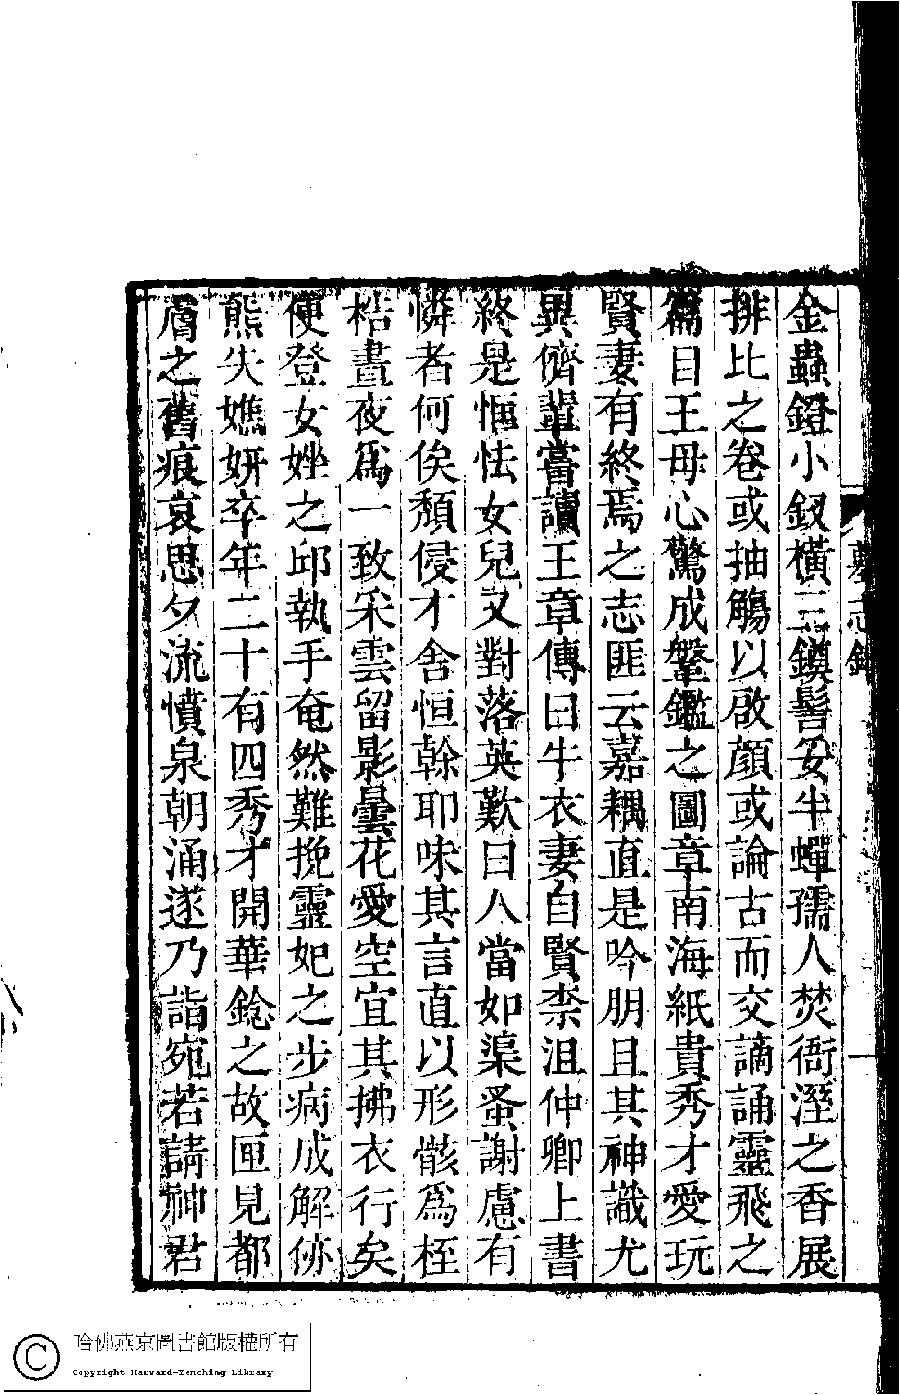 金蟲鐙小釵橫三鏌髻妥半蟬孺人焚衙溼之香展
排比之卷或抽觴以啟顏或論古而交謫誦靈飛之
篇目王母心驚成鞶鑑之圖章南海紙貴秀才愛玩
賢妻有終焉之志匪云嘉耦直是吟朋且其神識尤
異儕輩嘗讀王章傳曰牛衣妻自賢柰沮仲卿上書
終是恇怯女兒又對落英歎曰人當如渠蚤謝慮有
憐者何俟頽侵才舍恒榦耶味其言直以形骸爲桎
梏晝夜爲一致采雲留影曇花愛空宜其拂衣行矣
便登女㛗之邱執手奄然難挽靈妃之步病成解㑊
熊失嫶妍卒年二十有四秀才開華錜之故匣見都
膚之舊痕哀思夕流憤泉朝涌遂乃詣宛若請神君
墓志銘
哈佛燕京圖書館版權所有
Copyright Harvard-Yenching Library